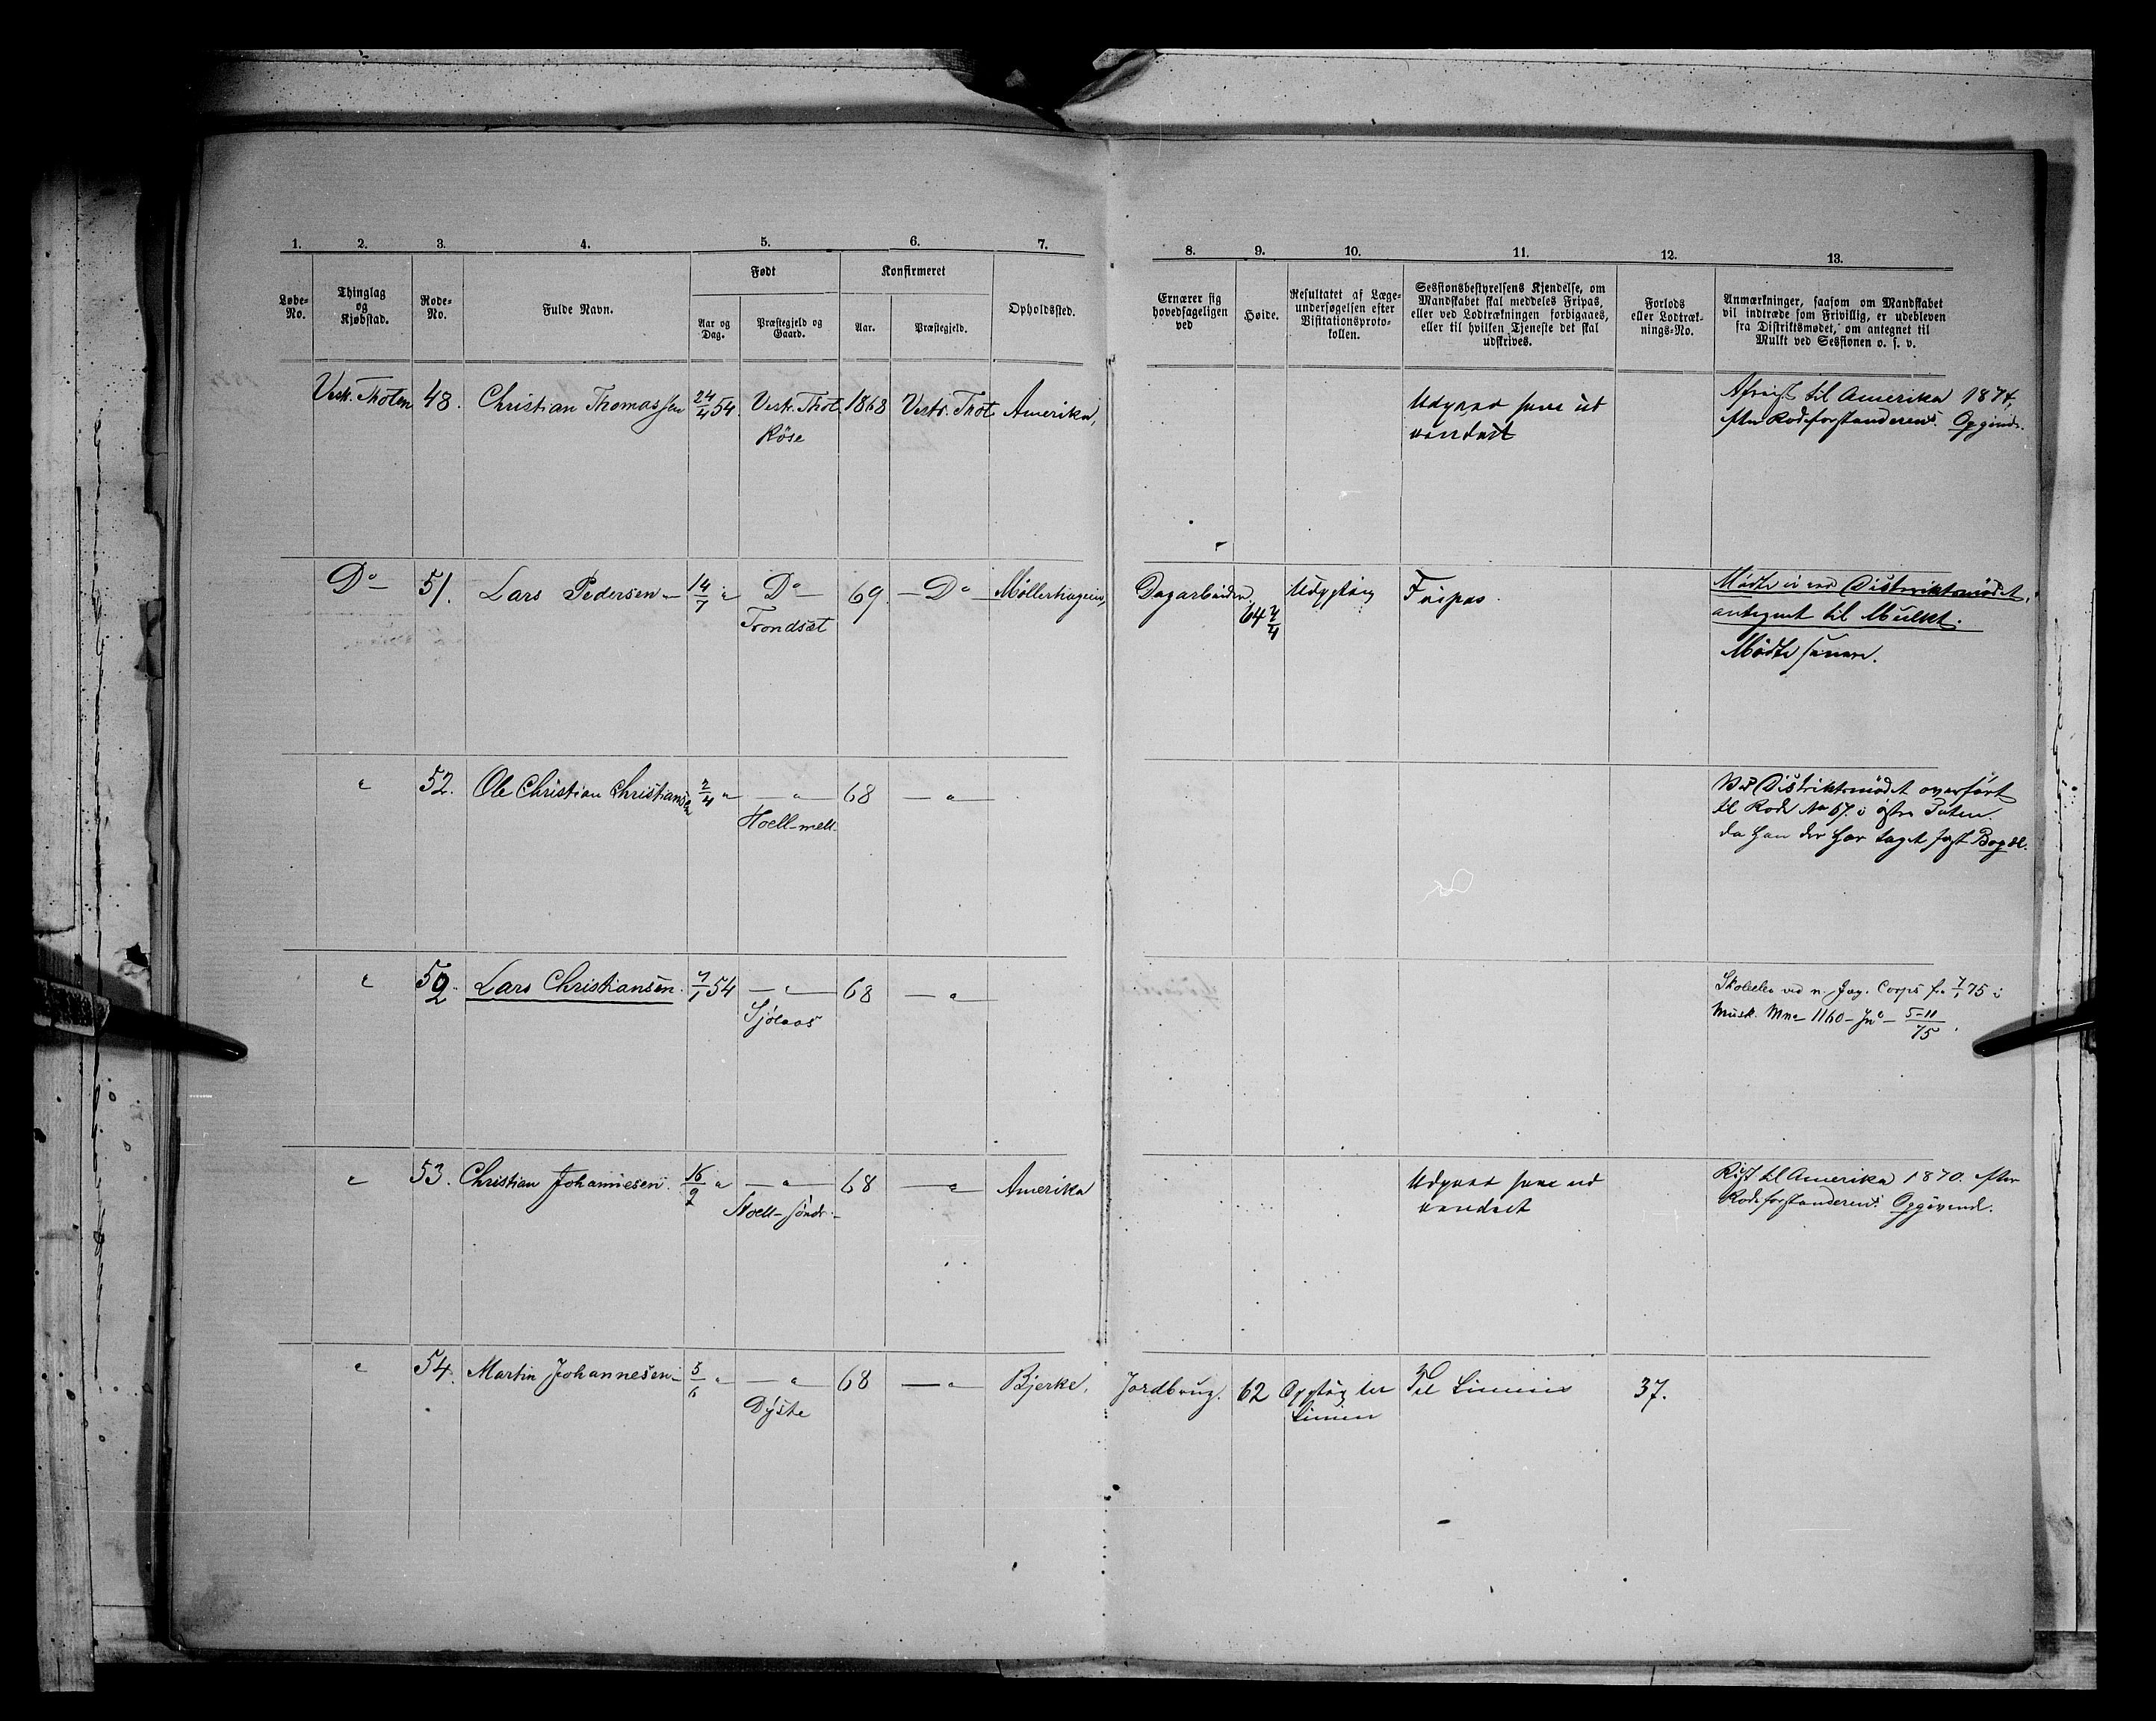 1. 2. 3. 4. 5. 6. 7. 8. 9. 10. 11. 12. 13.
Løbe-No.
Thinglag og Kjøbstad.
Rode-No.
Fulde Navn.
Født
Aar og Dag.
Præstegjeld og Gaard.
Konfirmeret
Aar.
Præstegjeld.
Opholdssted.
Ernærer sig hovedsageligen ved
Høide.
Resultatet af Læge-undersøgelsen efter Visitationsproto-kollen.
Sessionsbestyrelsens Kjendelse, om Mandskabet skal meddeles Fripas, eller ved Lodtrækningen forbigaaes, eller til hvilken Tjeneste det skal udskrives.
Forlods eller Lodtræk-nings-No.
Anmærkninger, saasom om Mandskabet vil indtræde som Frivillig, er udebleven fra Distriktsmødet, om antegnet til Mulkt ved Sessionen o. s. v.
Vestr. Thoten 48. Christian Thomassen 24/4 54. Vestr. Thot. 1868 Vestr. Thot. Amerika,
Röse
Udgaaet som ud
vandret
Afreist til Amerika 1874,
efter Rodeforstanderens Opgivde.
Do 51. Lars Pedersen 14/7 " Do 69. Do Møllerhagen,
Trondsæt
Dagarbeider. 64 2/4 Udygtig Fripas.
Mødte ei ved Distriktsmødet,
antegnet til Mulkt.
Mødte senere.
" 52. Ole Christian Christiansen 2/4 " — " — 68 — " —
Hoell-mell.
Ved Distriktsmødet overført
til Rode No 67. i østre Toten.
da han der har taget fast Bopæl.
" 52. Lars Christiansen. 7/1 54 — " — 68 — " —
Sjölaas
Skoleelev ved n. Jæg. Corps fra 7/1 75 i
Musk. Mne 1160 - Jno - 5-11/75.
" 53. Christian Johannesen. 16/2 " — " — 68 — " — Amerika
Hoell-søndr.
Udgaaet som ud
vandret
Reist til Amerika 1870. efter
Rodeforstanderens Opgivende.
" 54. Martin Johannesen 5/6 " — " — 68 — " — Bjerke.
Dyste
Jordbrug. 62 Dygtig til Til Linien 37.
Linien